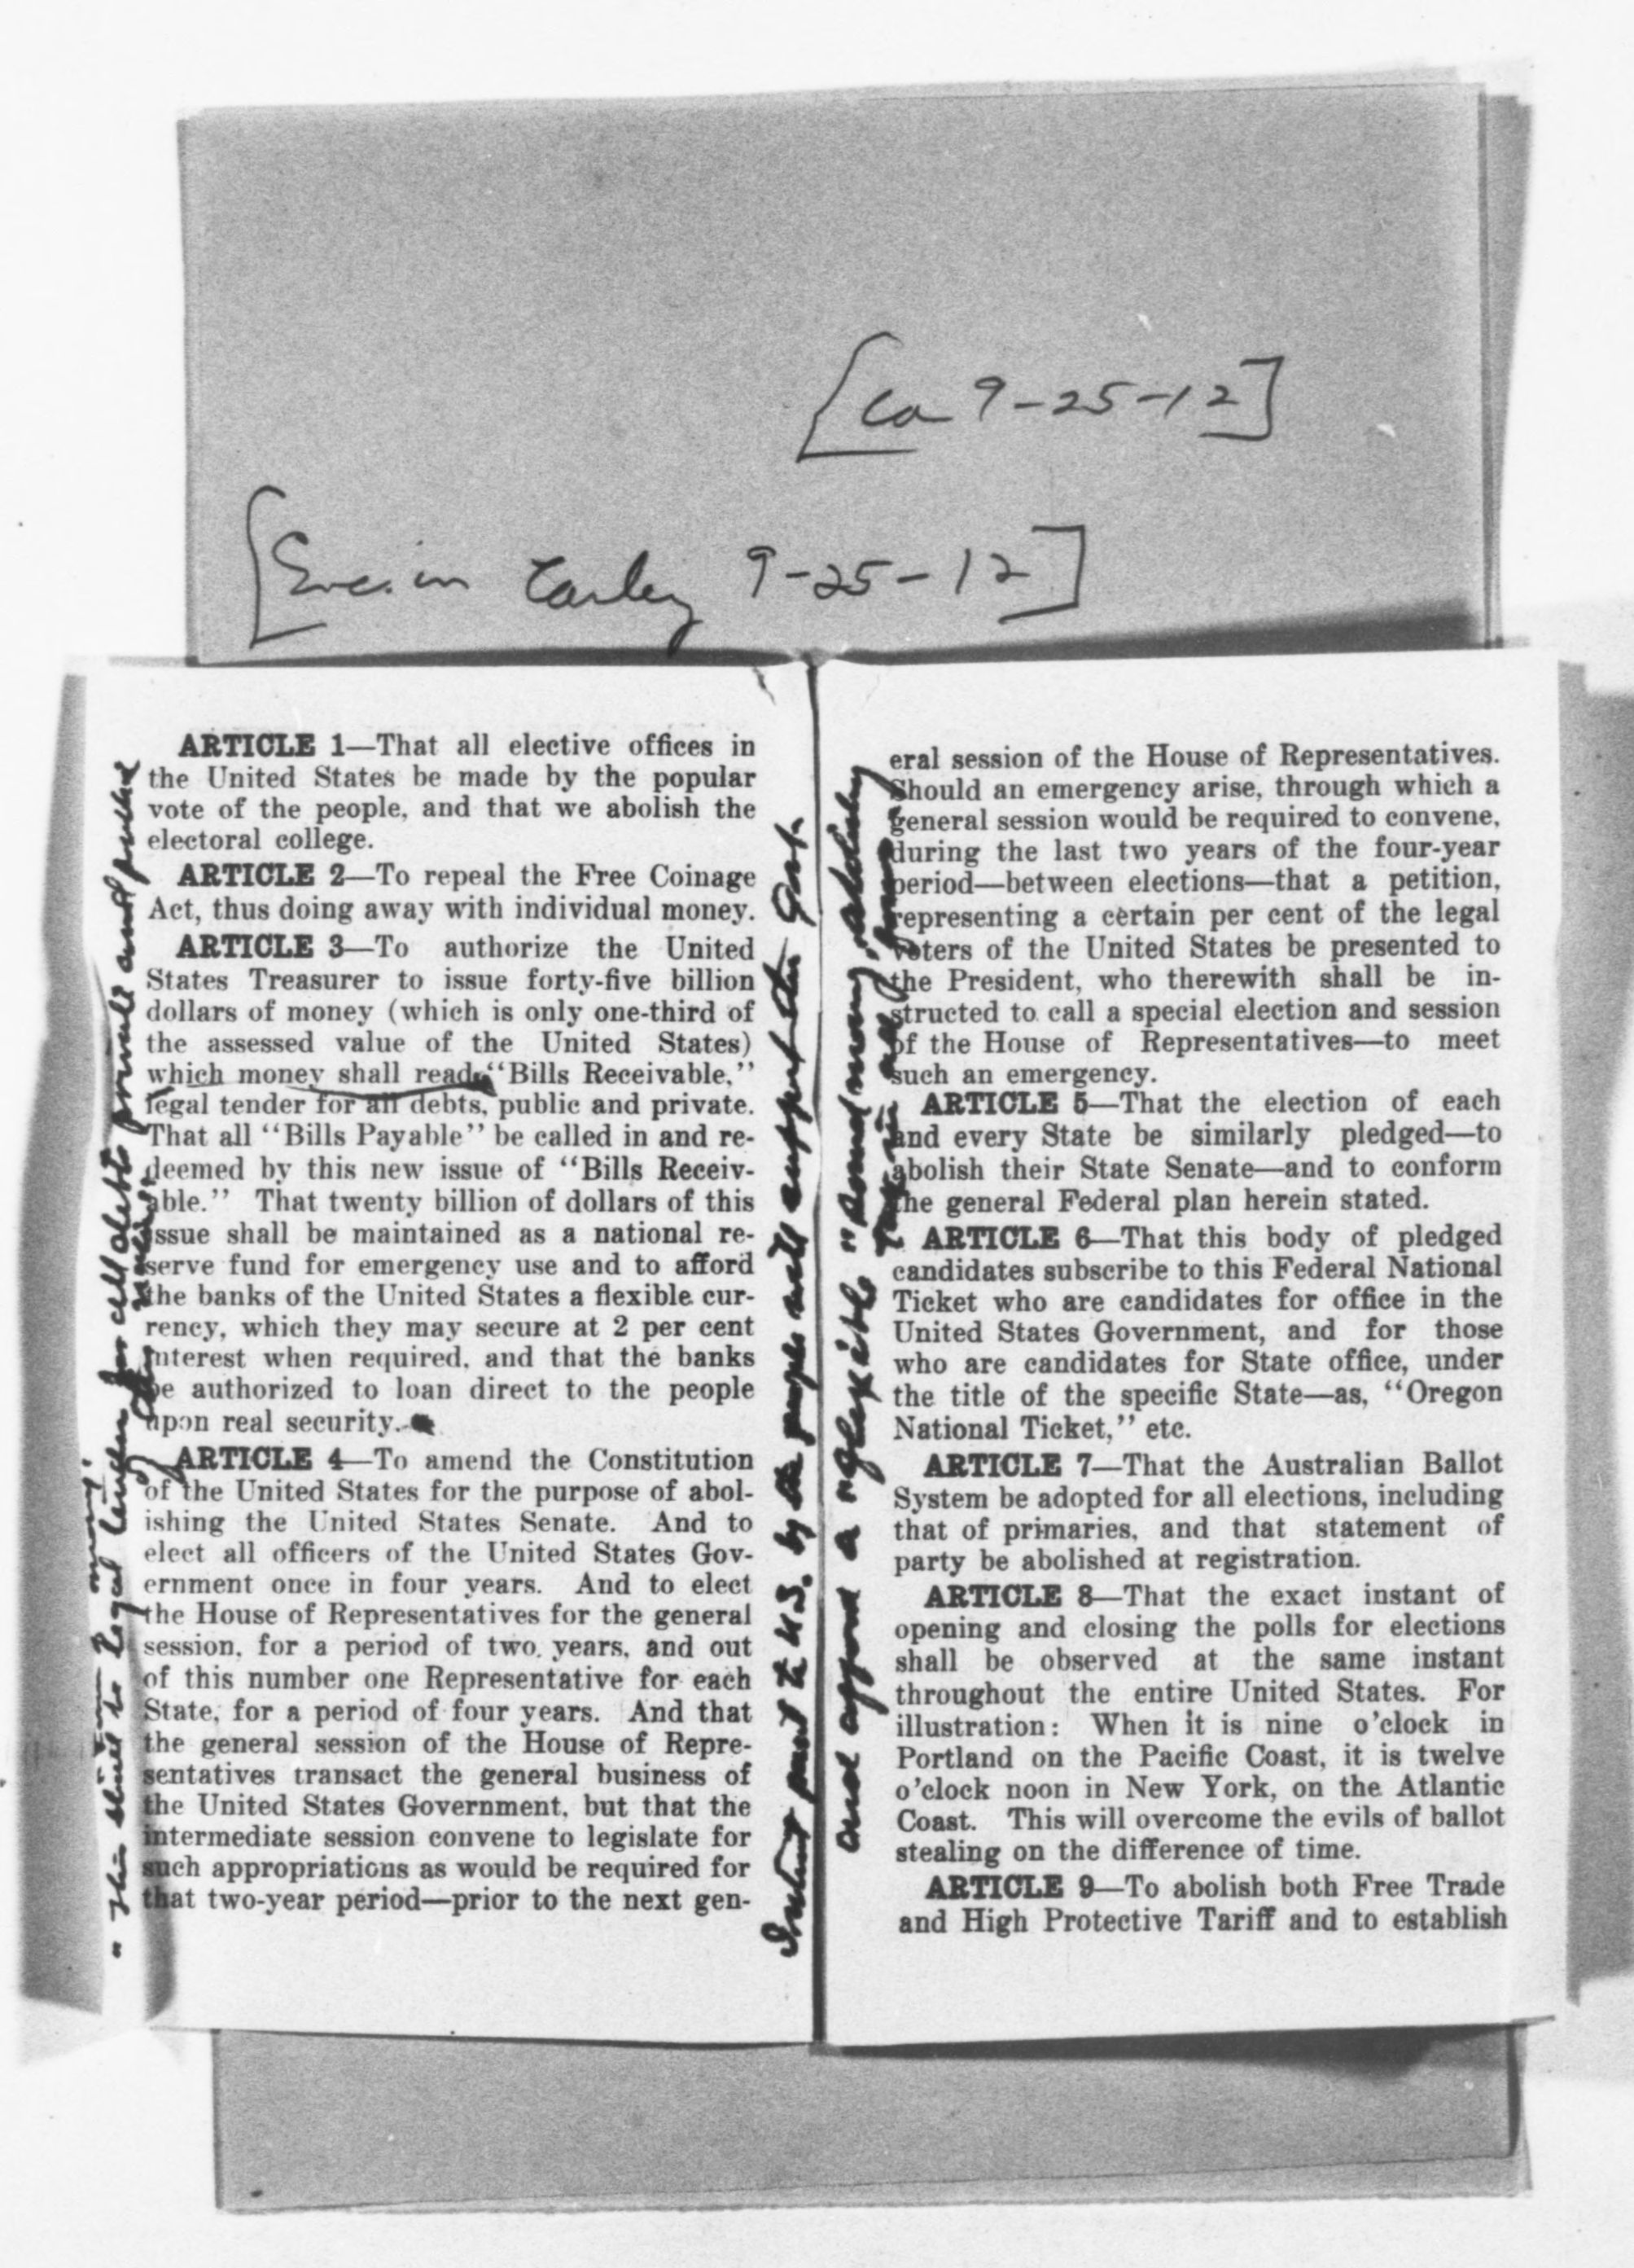 [Ca 9-25-12]
[Enc. in Earley 9-25-12]
ARTICLE 1—That all elective offices in
the United States be made by the popular
vote of the people, and that we abolish the
electoral college.
ARTICLE 2—To repeal the Free Coinage
Act, thus doing away with individual money.
ARTICLE 3—To authorize the United
States Treasurer to issue forty-five billion
dollars of money (which is only one-third of
the assessed value of the United States)
which money shall read "Bills Receivable,"
legal tender for all debts, public and private.
That all "Bills Payable" be called in and re-
deemed by this new issue of "Bills Receiv-
able." That twenty billion of dollars of this
issue shall be maintained as a national re-
serve fund for emergency use and to afford
the banks of the United States a flexible cur-
rency, which they may secure at 2 per cent
interest when required, and that the banks
be authorized to loan direct to the people
upon real security.
ARTICLE 4—To amend the Constitution
of the United States for the purpose of abol-
ishing the United States Senate. And to
elect all officers of the United States Gov-
ernment once in four years. And to elect
the House of Representatives for the general
session, for a period of two years, and out
of this number one Representative for each
State, for a period of four years. And that
the general session of the House of Repre-
sentatives transact the general business of
the United States Government, but that the
intermediate session convene to legislate for
such appropriations as would be required for
that two-year period—prior to the next gen-
legal tender for all debts private and public
Interest paid to U.S. by the people will support the Govt.
and afford a "flexible" "sound money" 
eral session of the House of Representatives.
Should an emergency arise, through which a
general session would be required to convene,
during the last two years of the four-year
period—between elections—that a petition,
representing a certain per cent of the legal
voters of the United States be presented to
the President, who therewith shall be in-
structed to call a special election and session
of the House of Representatives—to meet
such an emergency.
ARTICLE 5—That the election of each
and every State be similarly pledged—to
abolish their State Senate—and to conform
the general Federal plan herein stated.
ARTICLE 6—That this body of pledged
candidates subscribe to this Federal National
Ticket who are candidates for office in the
United States Government, and for those
who are candidates for State office, under
the title of the specific State—as, "Oregon
National Ticket," etc.
ARTICLE 7—That the Australian Ballot
System be adopted for all elections, including
that of primaries, and that statement of
party be abolished at registration.
ARTICLE 8—That the exact instant of
opening and closing the polls for elections
shall be observed at the same instant
throughout the entire United States. For
illustration: When it is nine o'clock in
Portland on the Pacific Coast, it is twelve
o'clock noon in New York, on the Atlantic
Coast. This will overcome the evils of ballot
stealing on the difference of time.
ARTICLE 9—To abolish both Free Trade
and High Protective Tariff and to establish